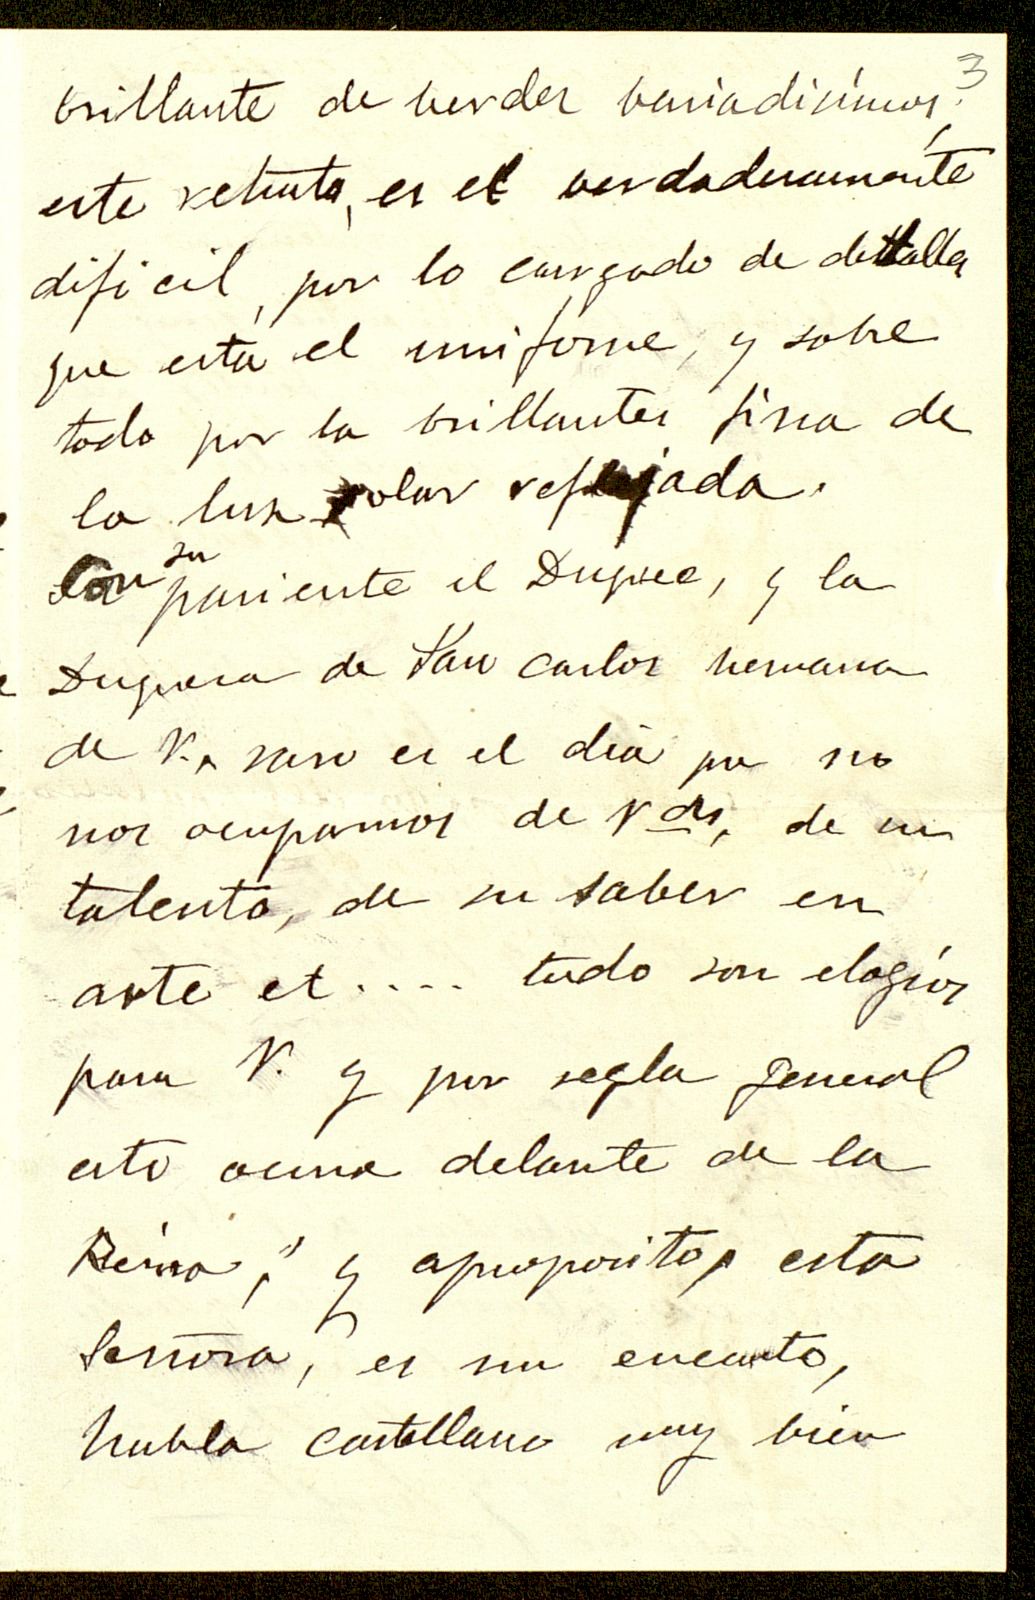 3
brillante de verdes bariadisimos,
este retrato, es el verdaderamente
dificil, por lo cargado de detalles
que está el uniforme, y sobre
todo por la brillantes fina de
la lus solar reflejada.
Con su pariente el Duque, y la
Duquesa de San Carlos hermana
de V., raro es el dia que no
nos ocupamos de Vdes, de su
talento, de su saber en
arte et.... todo son elogíos
para V. y por regla general
esto ocurre delante de la
Reina, y aproposito, esta
Señora, es un encanto,
habla castellano muy bien